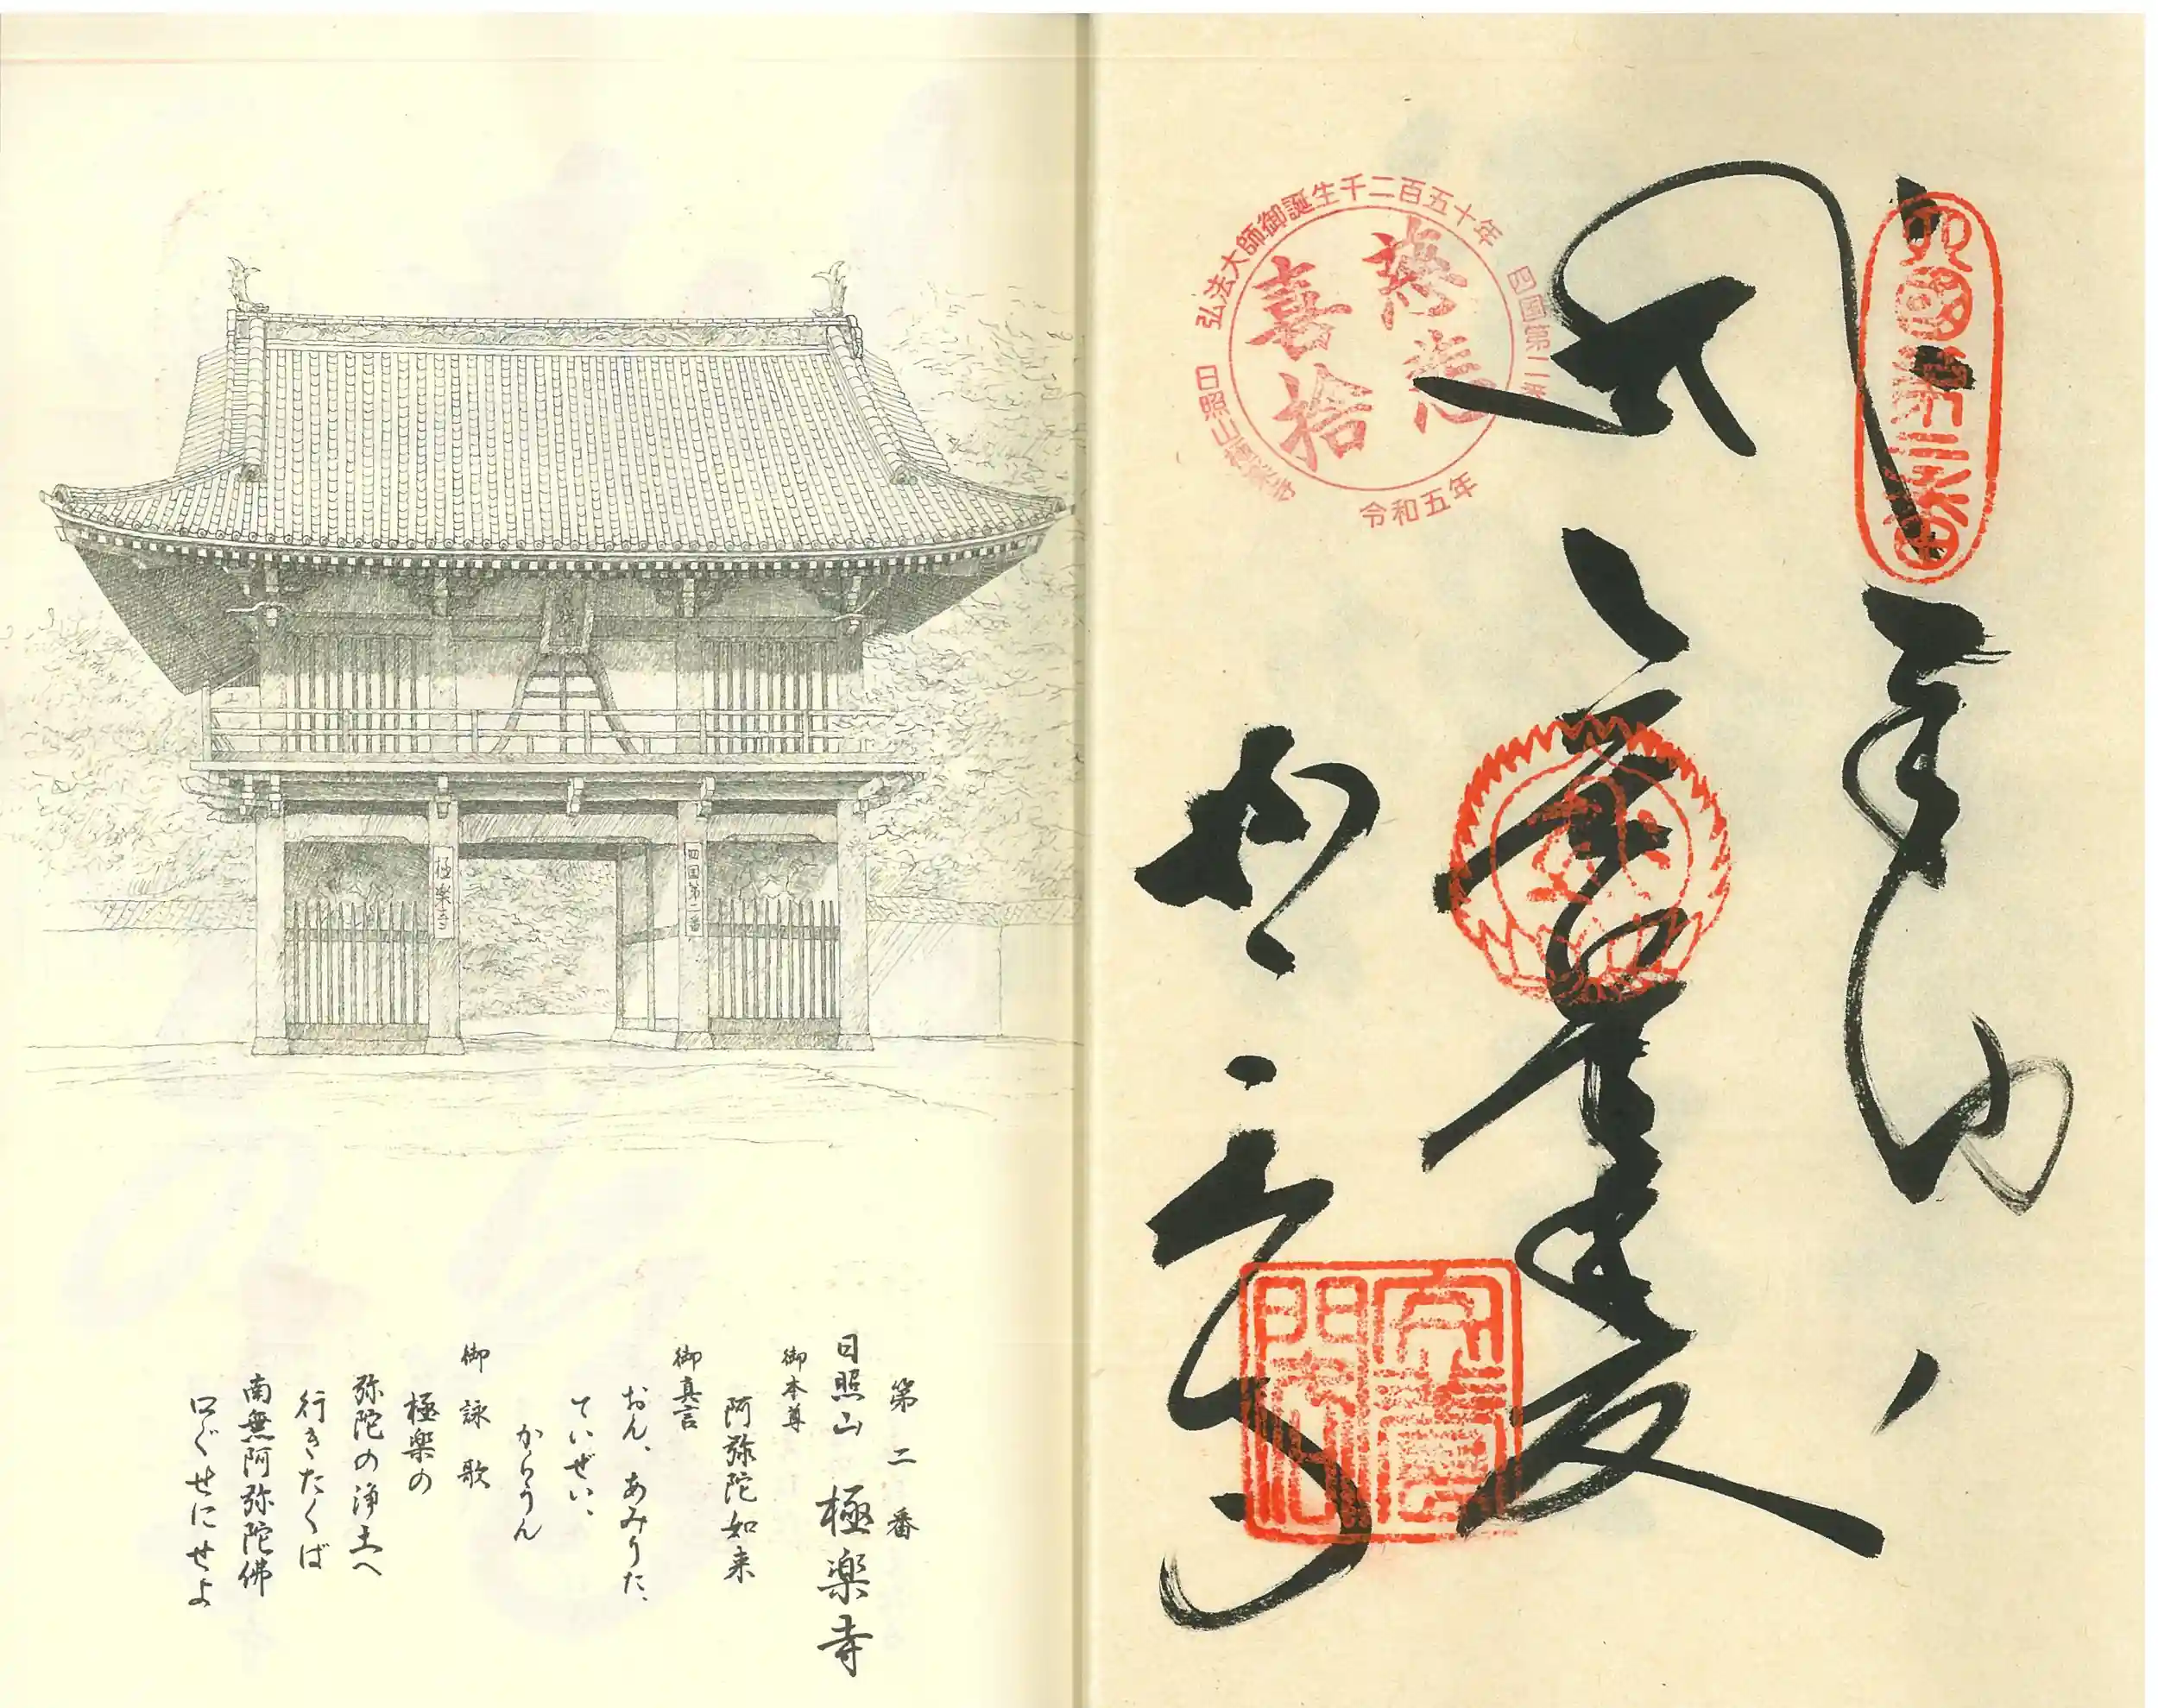 弘法大師御誕生千二百五十年
四国第二番
日照山極楽寺
令和五年
慈悲
喜捨
四國第二番
奉納
極楽寺
四国第二番
第二番
日照山 極楽寺
御本尊
阿弥陀如来
御真言
おん、あみりた、
ていぜい、
からうん
御詠歌
極楽の
弥陀の浄土へ
行きたくば
南無阿弥陀佛
口ぐせにせよ